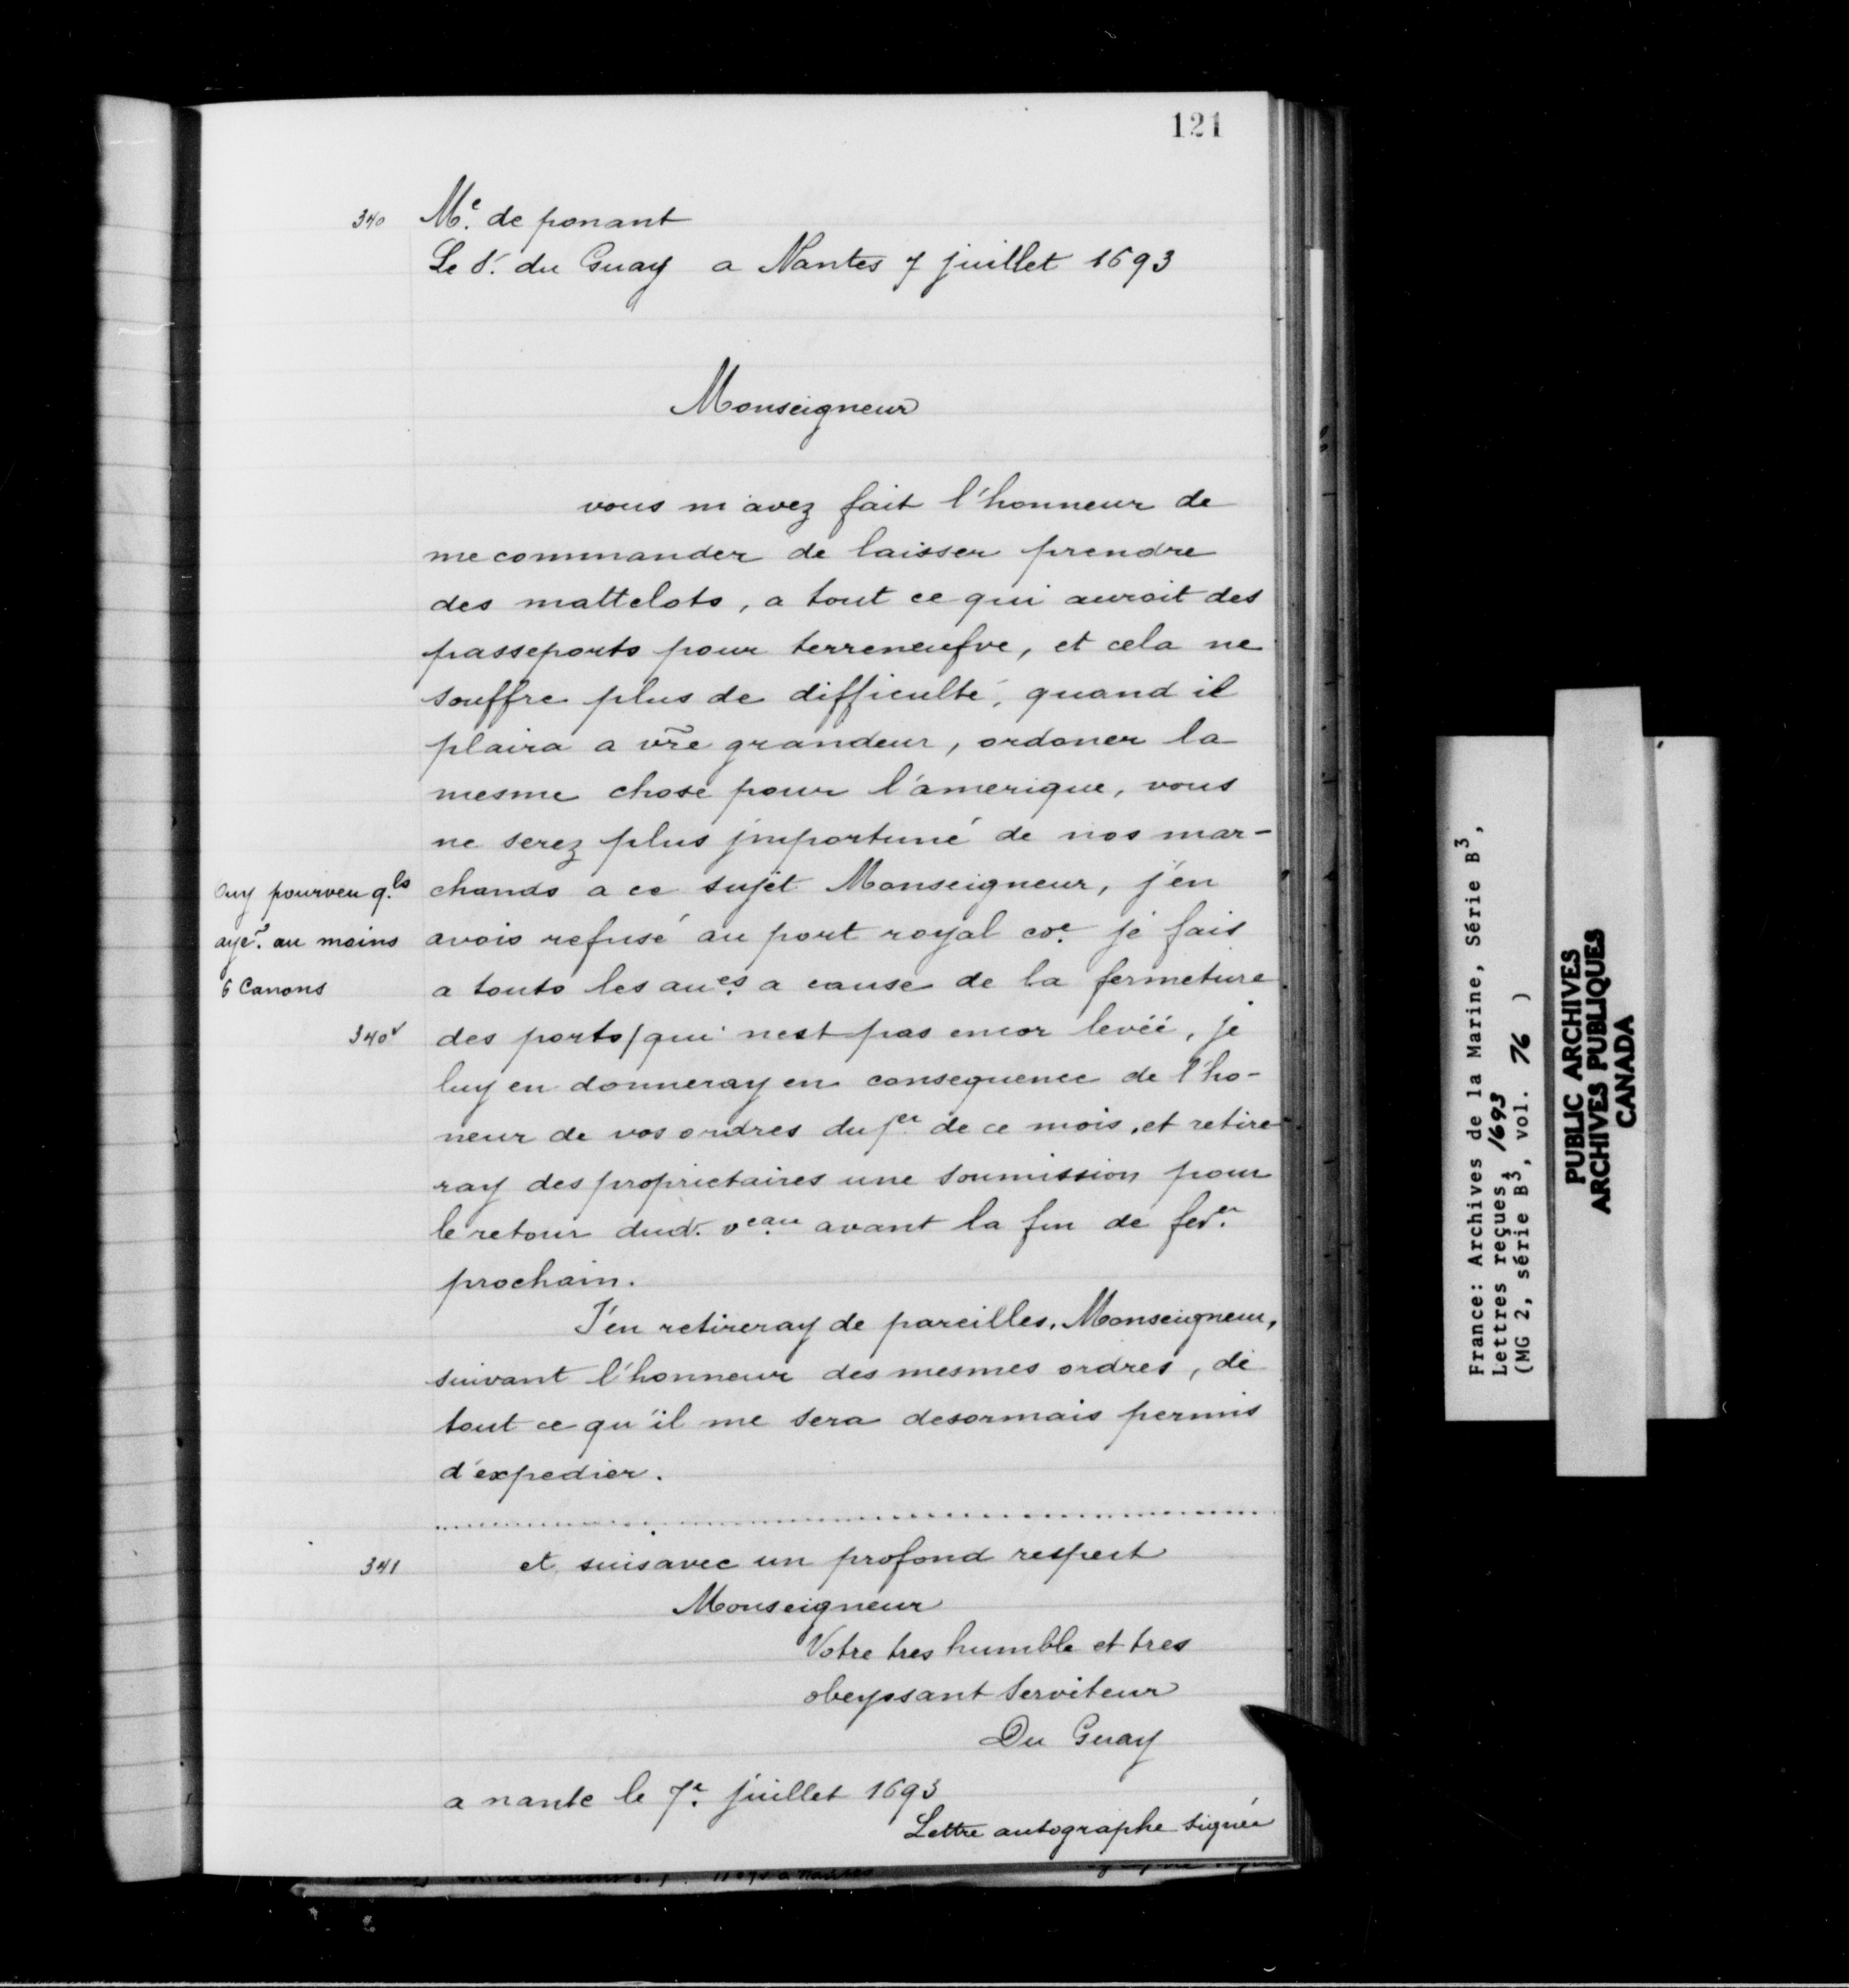 121
340 Mᵉ. de ponant
Le Sʳ. du Guay a Nantes 7 juillet 1693
Monseigneur
vous m'avez fait l'honneur de
me commander de laisser prendre
des mattelots, a tout ce qui auroit des
passeports pour terreneufve, et cela ne
souffre plus de difficulté, quand il
plaira a vr̃e grandeur, ordoner la
mesme chose pour l'amerique, vous
ne serez plus jmportuné de nos mar-
chands a ce sujet Monseigneur, j'en
avois refusé au port royal coᵉ. je fais
a touts les auᵉˢ. a cause de la fermeture
Ouy pourveu q.ˡˢ
ayeᵗ. au moins
6 Canons
340ᵛ des ports/qui n'est pas encor levéé, je
luy en donneray en consequence de l'ho-
neur de vos ordres du pᵉʳ de ce mois, et retire-
ray des proprietaires une soumission pour
le retour dud. vᵉᵃᵘ. avant la fin de fevᵉʳ.
prochain.
J'en retireray de pareilles, Monseigneur,
suivant l'honneur des mesmes ordres, de
tout ce qu'il me sera desormais permis
d'expedier.
341 et suis avec un profond respect
Monseigneur
Votre tres humble et tres
obeyssant serviteur
Du Guay
a nante le 7ᵉ. juillet 1693
Lettre autographe signée
France: Archives de la Marine, Série B³,
Lettres reçues, 1693
(MG 2, série B³, vol. 76 )
PUBLIC ARCHIVES
ARCHIVES PUBLIQUES
CANADA